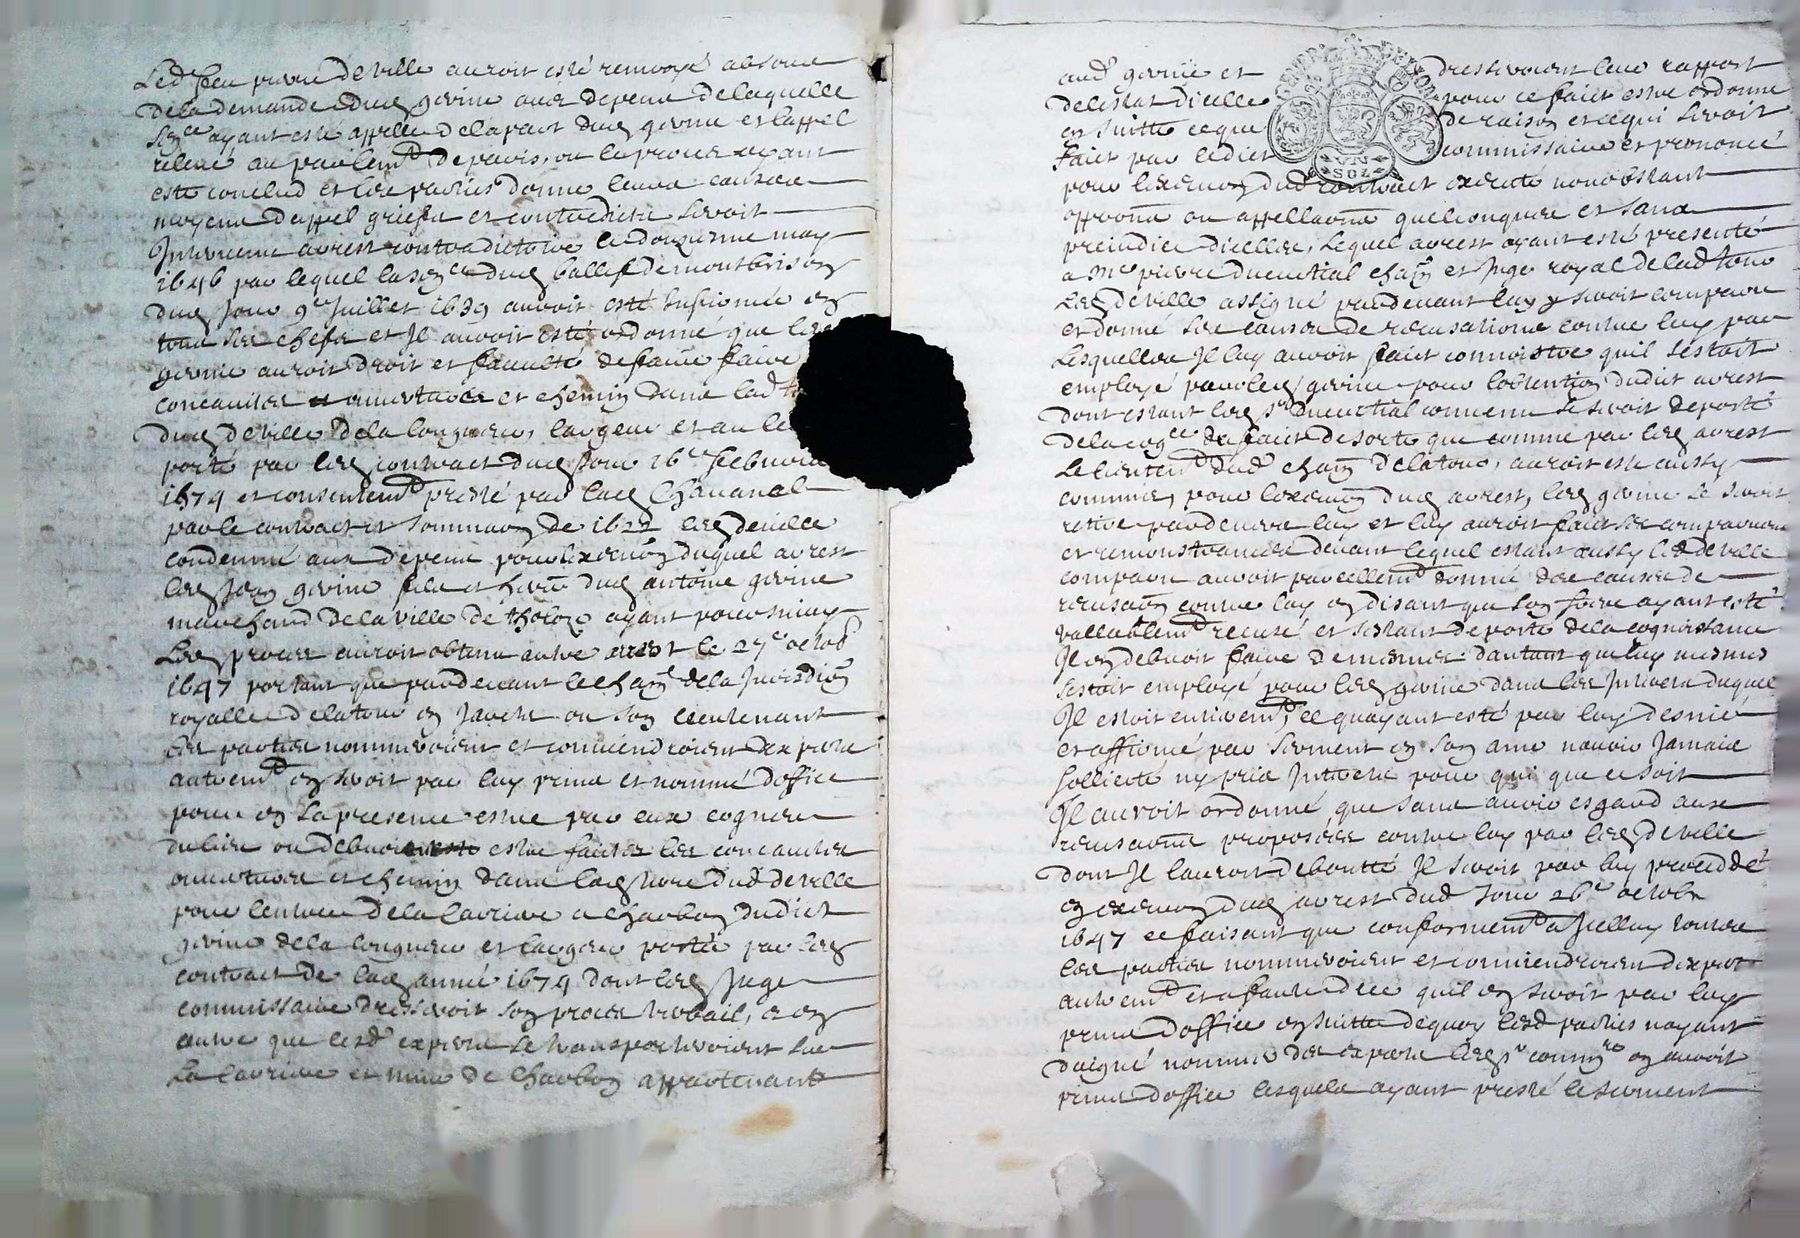 Led feu pierre Deville auroit esté renvoyé absoue
De la demande dud gerine avec depens de laquelle
Snce ayant esté appellé de la part dud gerine et lappel
relevé au parlemt de paris, ou le proces ayant
esté conclud et les parties donné leurs causes
moyens Dappel griefs et contredicts seroit
Intervenu arrest contradictoire le douzieme may
1646 par lequel la snce dud baillif de montbrison
dud Jour 9e Juillet 1639 auroit esté infirmée en
tous ses chefs et Il auroit esté ordonné que led
gerine auroit droit et faculté de faire faire
concavites ouvertures et chemin dans lad
dud deville de la longueur, largeur et au
porté par led contract dud Jour 16e febvrie
1574 et consentemt presté par lad Chavanel
par le contract et sommaon de 1622 led deville
condemné aux depens pour lexeon duquel arrest
led Jean gerine fils et herer dud antoine gerine
marchand de la ville de tholoze ayant poursuivy
Led proces auroit obtenu autre arrest le 27e octob
1647 portant que pardevant le chaain de la Jurisdion
royalle de latour en Jarests ou son lieutenant
les parties nommeroient et conviendroient dexperts
autremt en seroit par luy prins et nommé doffice
pour en sa presence estre par eux cogneu
du lieu ou debvoient estre faictes les concavites
ouvertures et chemin dans lad terre dud deville
pour lentree de la carriere a charbon dudict
gerine de la longueur et largeur portée par led
contract de lad année 1574 dont led Juge
commissaire dresseroit son proces verbail, et en
outre que lesd experts se transporteroient sur
La carriere et mine de charbon appartenant
aud gerine et dresseroient leur rapport
de lestat dicelle pour ce faict estre ordonné
en suitte ce que de raison et ce qui seroit
faict par ledict commissaire et prononcé
pour lexeuon dud contract executé nonobstant
oppoons ou appellaons quelconques et sans
preiudice dicelles, Lequel arrest ayant esté presenté
a Me pierre ducurtial chaain et Juge royal de lad tour
Led deville assigné pardevant luy y seroit comparu
et donné ses causes de recusations contre luy par
Lesquelles Il luy auroit faict connoistre quil sestoit
employé pour led gerine pour lobtention dudict arrest
dont estant led sr ducurtial convenu se seroit deporté
de la cogce du faict de sorte que comme par led arrest
Le lieutent dud chaain de latour, auroit esté aussy
commis, pour lexeuon dud arrest, led gerine se seroit
retiré pardevers luy et luy auroit faict ses comparuons
et remonstrances devant lequel estant aussy led deville
comparu auroit pareillemt donné des causes de
recusaon contre luy en disant que son frere ayant esté
vallablemt recusé et sestant deporté de la cognoissance
Il en debvoit faire de mesmes dautant que luy mesmes
sestoit employé pour led gerine dans les Interets duquel
Il estoit entieremt, ce quayant esté par luy desnié
et affirmé par serment en son ame navoir Jamais
sollicité ny prié Intterets pour qui que ce soit
Il auroit ordonné que sans avoir esgard aux
recusaons proposées contre luy par led deville
dont Il lauroit deboutté Il seroit par luy proceddé
en exeuon dud arrest dud Jour 26e octobr
1647 ce faisant que conformemt a Icelluy toutes
les parties nommeroient et conviendroient dexperts
autremt et a faute dece quil en seroit par luy
prins doffice en suitte dequoy lesd parties nayant
daigné nommer des experts led sr commre en auroit
prins doffice lesquels ayant presté le serment
GENER
VN
SOL